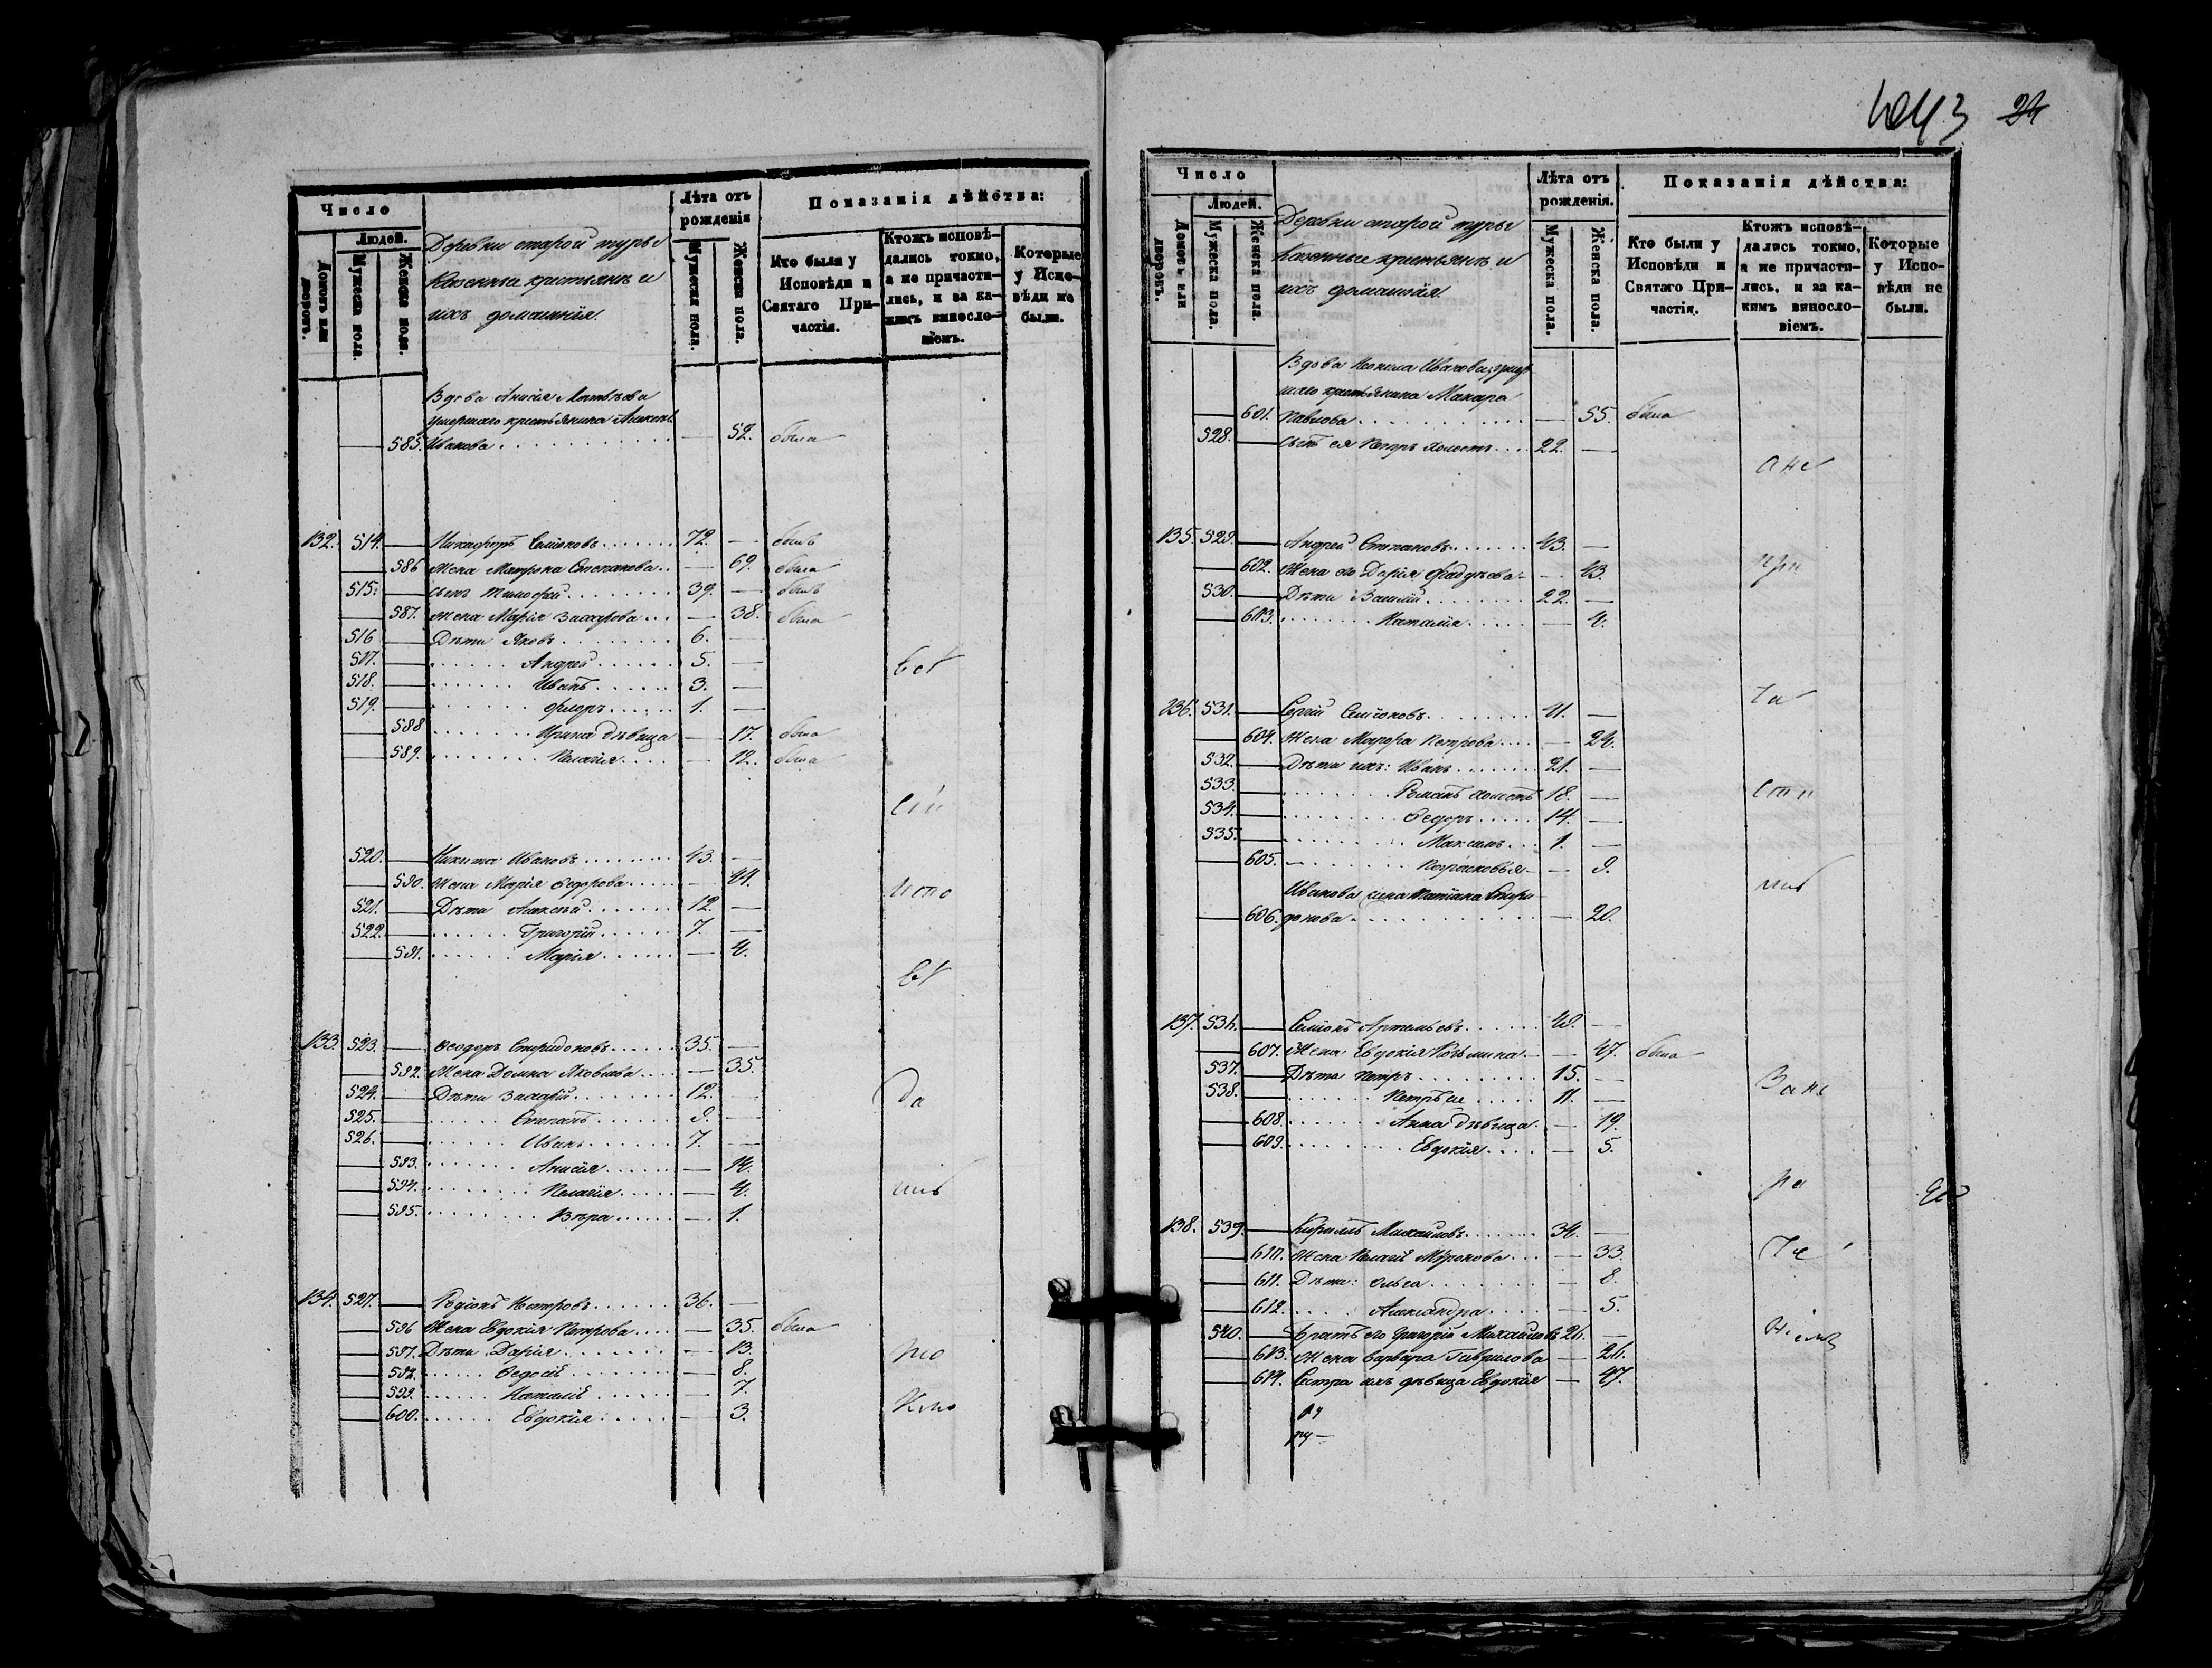 Число
Людей.
Домовъ или дворовъ.
Мужеска пола.
Женска пола.
Деревни старой турьи
Казенные крестьянъ и
ихъ домашнія.
Лѣта отъ рожденія
Мужеска пола.
Женска пола.
Показанія дѣйства:
Кто были у Исповѣди и Святаго Причастія.
Ктожъ исповѣдались токмо, а не причастились, и за какимъ винословіемъ.
Которые у Исповѣди не были.
Вдова Анисія
умершаго крестьянина
585. Иванова — 52. была
132. 514. — Никифоръ Симіоновъ 72. — былъ
586 Жена Матрона Степанова — 69. была
515. — сынъ Тимофей 39. — былъ
587. Жена Марія Захарова — 38. была
516 — Дѣти Яковъ 6. —
517. — Андрей 5. —
518. — Иванъ 3. —
519. — Флоръ 1. —
588 Ирина дѣвица — 17. была
589. Пелагія — 12. была
520. — Никита Ивановъ 43. —
590. Жена Марія Федорова — 44.
521. — Дѣти Алексѣй 12. —
522. — Григорій 7. —
591. Марія — 4.
133. 523. — Феодоръ Спиридоновъ 35. —
592. Жена Домна Яковлева — 35.
524. — Дѣти Захарій 12. —
525. — Степанъ 9. —
526. — Иванъ 7. —
593. Анисія — 14.
594. Пелагія — 4.
595. Вѣра — 1.
134. 527. — Родіонъ Петровъ 36. —
596 Жена Евдокія Петрова — 35. была
597. Дѣти Дарія — 13.
598. Федосіѣ — 8.
599. Наталіѣ — 7.
600. Евдокія — 3.
24
Число
Людей.
Домовъ или дворовъ.
Мужеска пола.
Женска пола.
Деревни старой турьи
Казенные крестьянъ и
ихъ домашнія.
Лѣта отъ рожденія.
Мужеска пола.
Женска пола.
Показанія дѣйства:
Кто были у Исповѣди и Святаго Причастія.
Ктожъ исповѣдались токмо, а не причастились, и за какимъ винословіемъ.
Которые у Исповѣди не были.
Вдова Иванова
крестьянина Макара
601. Павлова — 55. была
528. — сынъ ея Петръ холостъ 22. —
135. 529. — Андрей Степановъ 43. —
602. Жена его Дарія Фадѣева — 43.
530. — Дѣти Василій 22. —
603. Наталія — 4.
136. 531. — Сергій Симіоновъ 41. —
604. Жена Марфа Петрова — 24.
532. — Дѣти ихъ: Иванъ 21. —
533. — Романъ холостъ 18. —
534. — Федоръ 14. —
535. — Максимъ 1. —
605. — 9.
Иванова жена Татіана Спири
606. донова — 20.
137. 536. — Симіонъ Артемьевъ 49. —
607. Жена Евдокія Козьмина — 47. была
537. — Дѣти Петръ 15. —
538. — Петръ же 11. —
608. Анна дѣвица — 19.
609. Евдокія — 5.
138. 539. — Кириллъ Михайловъ 34. —
610. Жена Пелагіѣ Миронова — 33
611. Дѣти: Ольга — 8.
612. Александра — 5.
540. — братъ его Григорій Михайловъ 26. —
613. Жена Варвара Гаврилова — 26.
614. Сестра ихъ дѣвица Евдокія — 47.